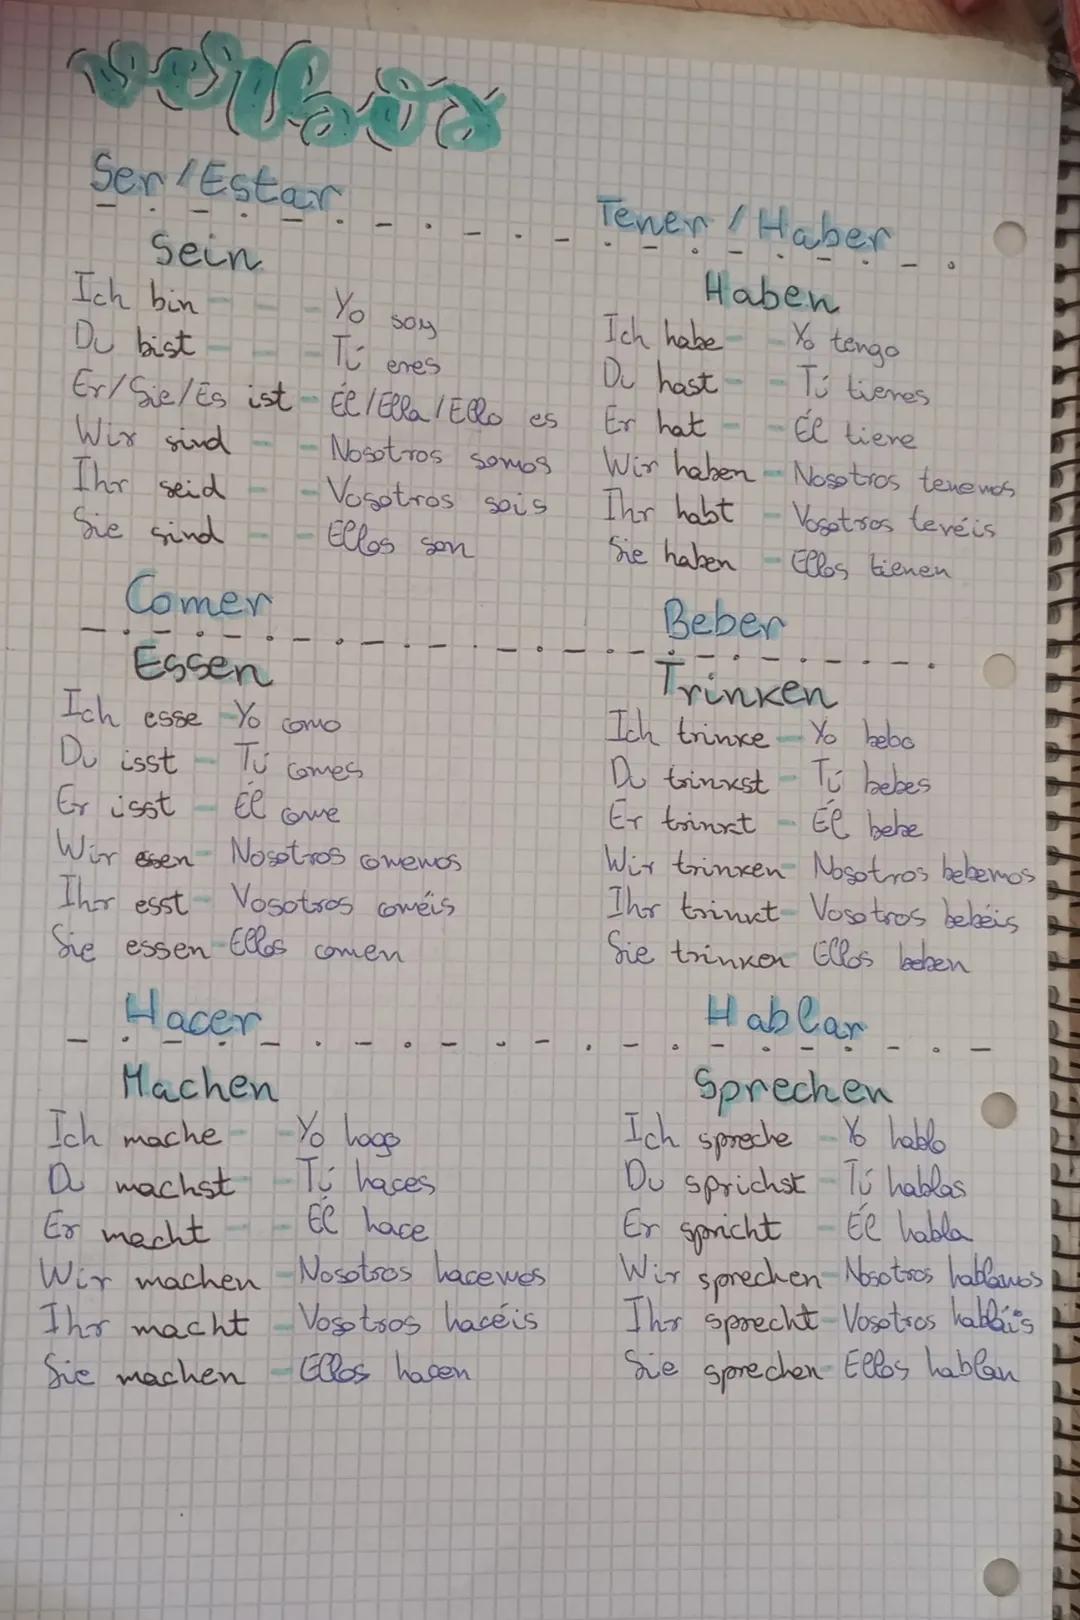 verbos
Ser / Estar
Sein
Ich bin - - Yo soy
Du bist - - Tú eres
Er/Sie/Es ist - Él/Ella/Ello es
Wir sind - - Nosotros somos
Ihr seid - - Vosotros sois
Sie sind - - Ellos son
Tener / Haber
Haben
Ich habe - - Yo tengo
Du hast - - Tú tienes
Er hat - - Él tiene
Wir haben - Nosotros tenemos
Ihr habt - Vosotros tenéis
Sie haben - Ellos tienen
Comer
Essen
Ich esse - Yo como
Du isst - Tú comes
Er isst - Él come
Wir essen - Nosotros comemos
Ihr esst - Vosotros coméis
Sie essen - Ellos comen
Beber
Trinken
Ich trinke - Yo bebo
Du trinkst - Tú bebes
Er trinkt - Él bebe
Wir trinken - Nosotros bebemos
Ihr trinkt - Vosotros bebéis
Sie trinken Ellos beben
Hacer
Machen
Ich mache - - Yo hago
Du machst - Tú haces
Er macht - - Él hace
Wir machen - Nosotros hacemos
Ihr macht - Vosotros hacéis
Sie machen - Ellos hacen
Hablar
Sprechen
Ich spreche - Yo hablo
Du sprichst - Tú hablas
Er spricht - Él habla
Wir sprechen - Nosotros hablamos
Ihr sprecht - Vosotros habláis
Sie sprechen - Ellos hablan